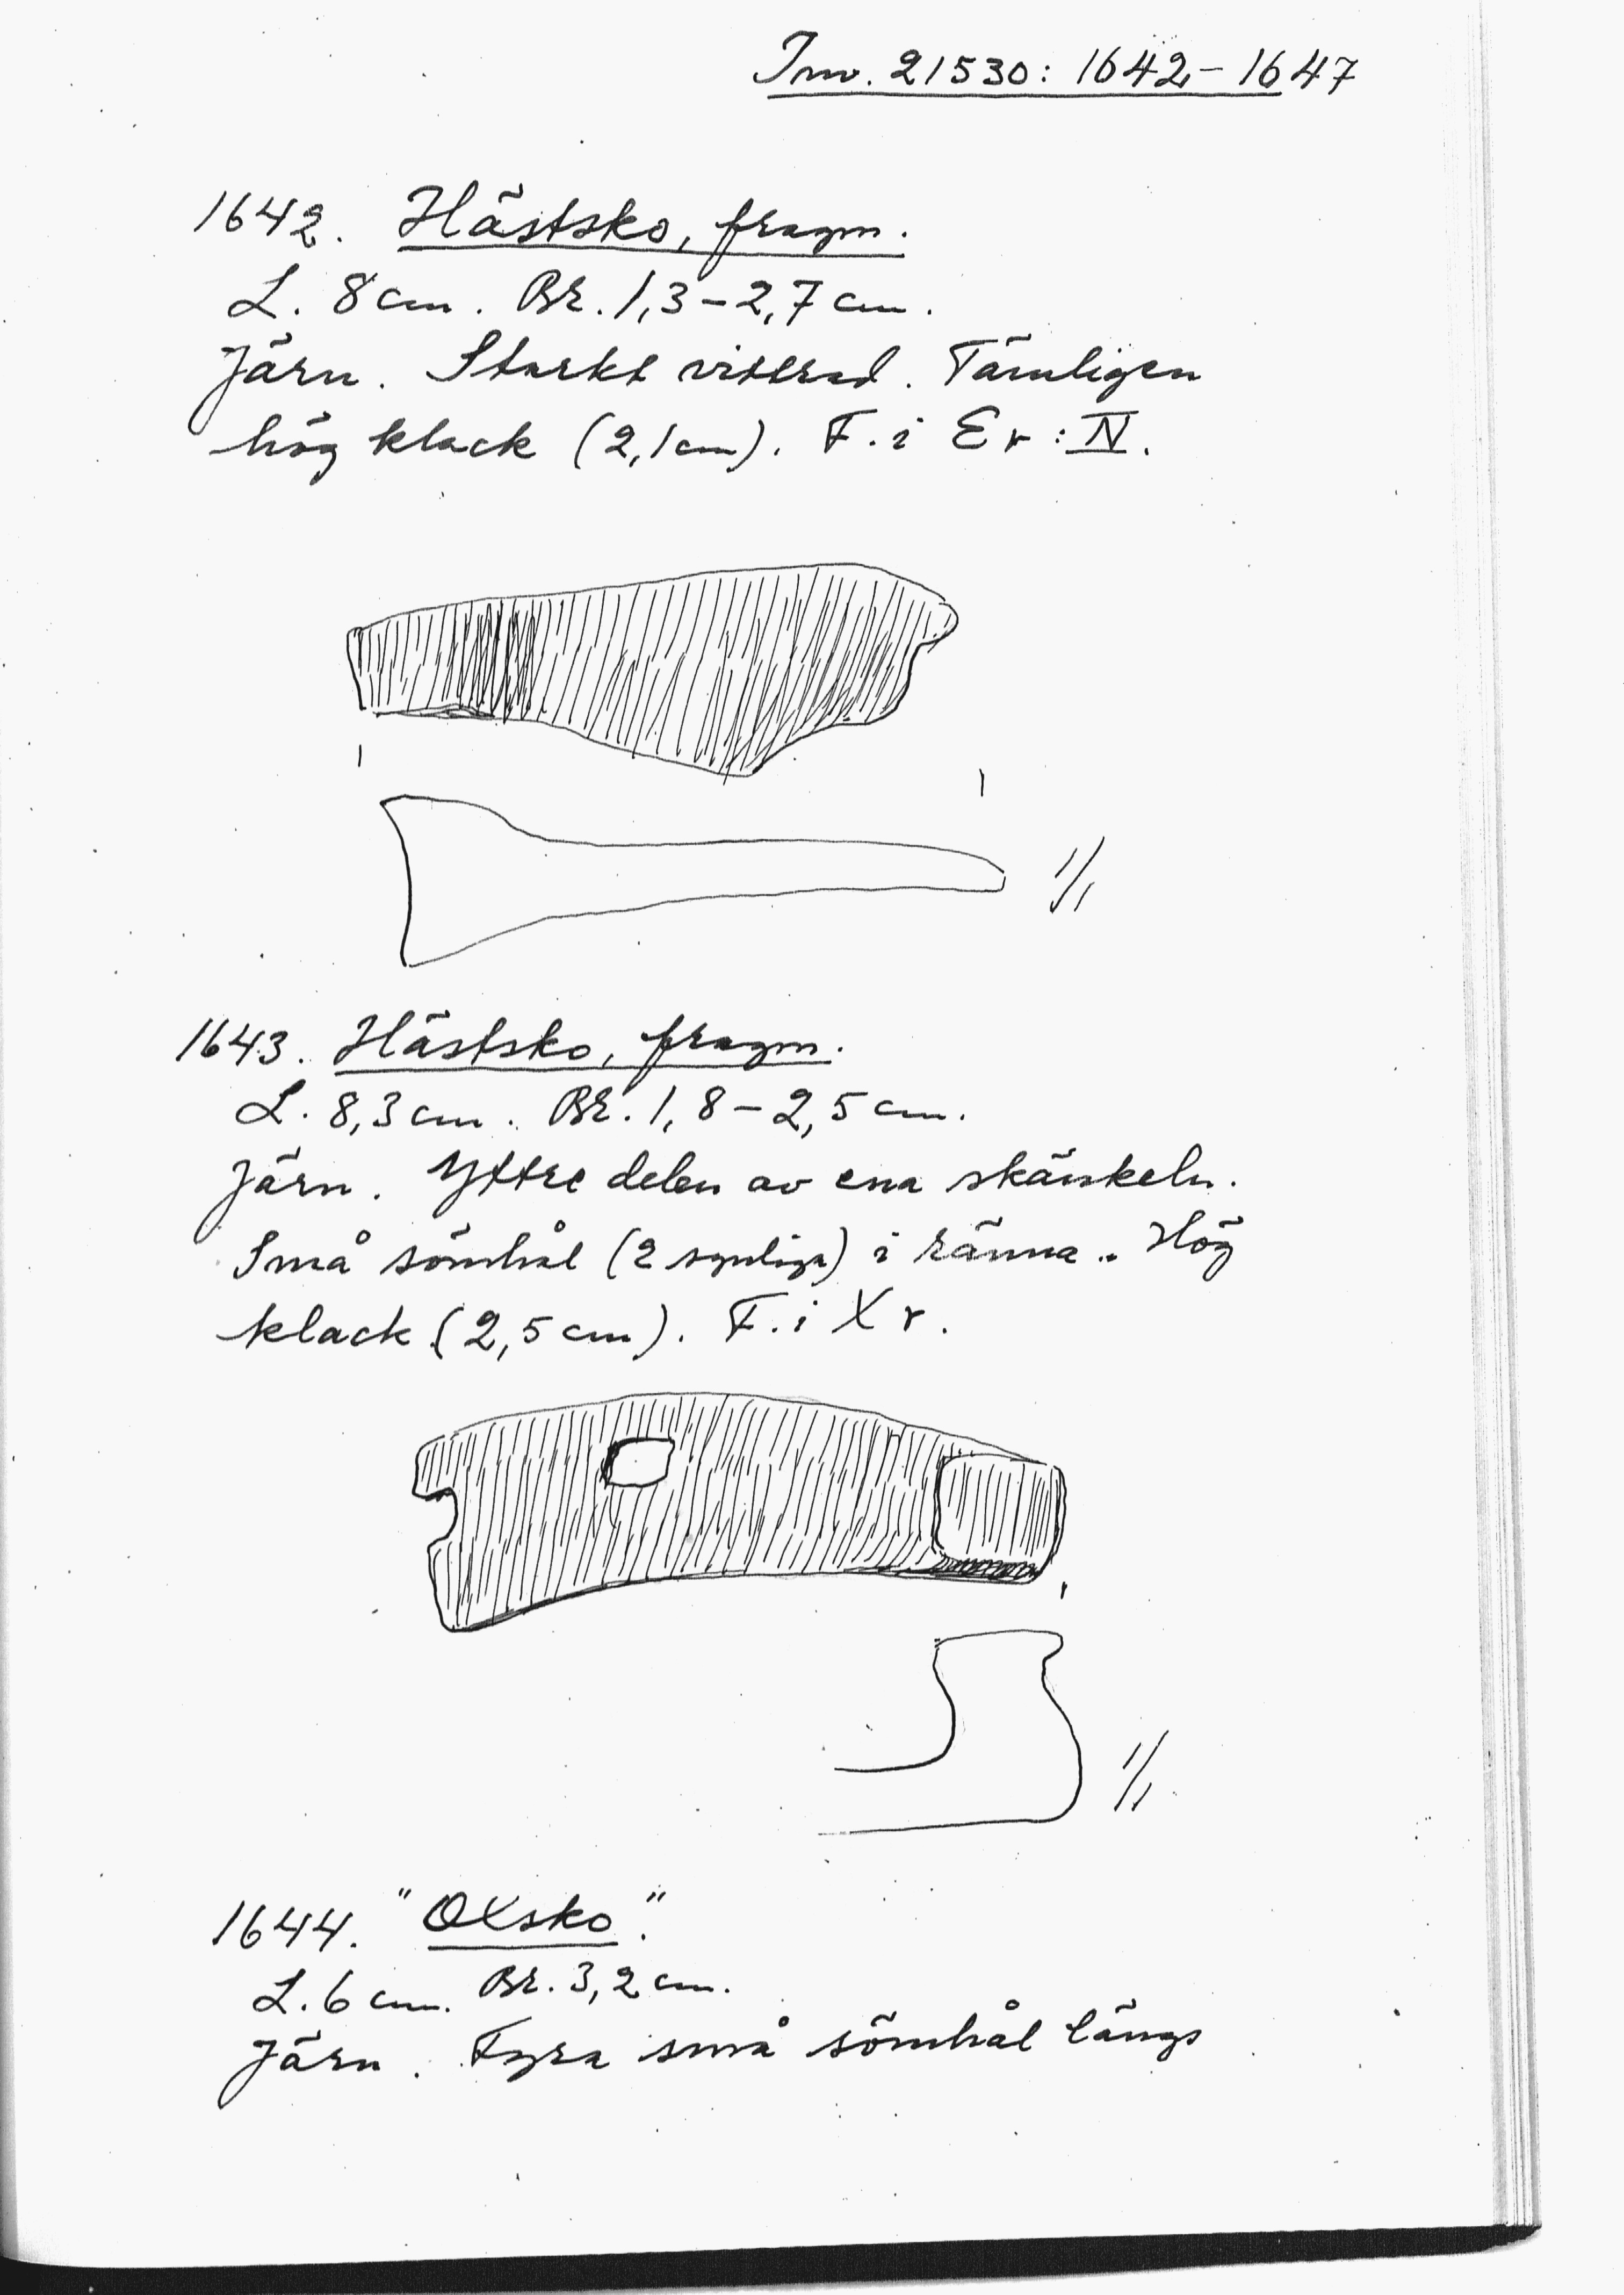 Inv. 21530: 1642–1647
1642. Hästsko, fragm.
L. 8 cm. Br. 1,3–2,7 cm.
Järn. Starkt vittrad. Tämligen
hög klack (2,1 cm). F. i E r : IV.
1/1
1643. Hästsko, fragm.
L. 8,3 cm. Br. 1,8–2,5 cm.
Järn. Yttre delen av ena skänkeln.
Små sömhål (2 synliga) i ränna. Hög
klack (2,5 cm). F. i X r.
1/1
1644. "Oxsko".
L. 6 cm. Br. 3,2 cm.
Järn. Fyra små sömhål längs